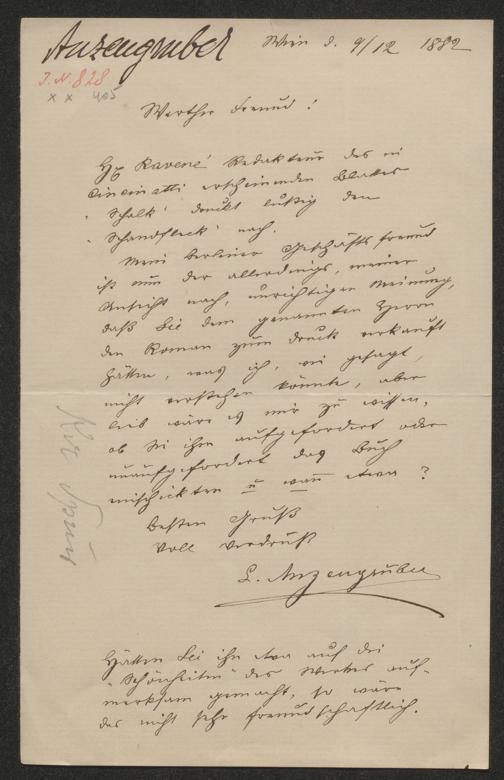 Anzengruber
Wien d. 9/12 1882
J. N. 828
x x 405
Werther Freund!
Hr Ravené Redakteur des in
Cincinatti erscheinenden Blattes
"Schalk" druckt lustig den
"Schandfleck" nach.
Mein berliner Geschäftsfreund
ist nun der allerdings, meiner
Ansicht nach, unrichtigen Meinung,
daß Sie dem genannten Herrn
den Roman zum druck verkauft
hätten, was ich, wie gesagt,
nicht verstehen könnte, aber
lieb wäre es mir zu wissen,
ob Sie ihm aufgefordert oder
unaufgefordert das Buch
einschickten u wann etwa?
besten Gruß
voll verdruß
L. Anzengruber
Hätten Sie ihn etwa auf die
"Schönheiten" des Werkes auf-
merksam gemacht, so wäre
das nicht sehr freundschaftlich.